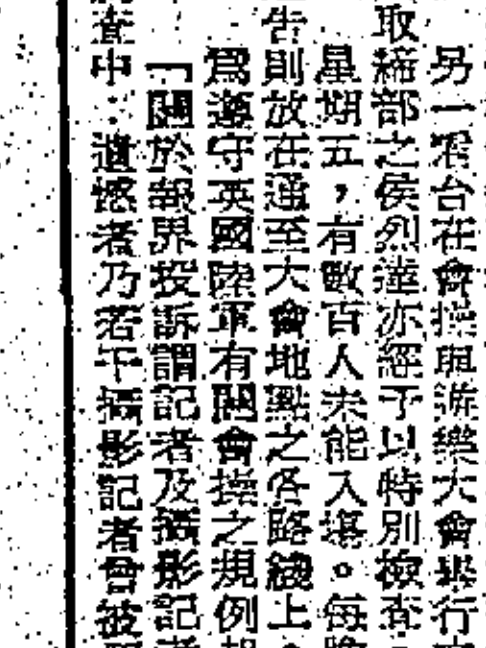 另一看台在會操與遊樂大會舉行
取締部之侯烈達亦經予以特別檢查
星期五，有數百人未能入場。每晚
告則放在通至大會地點之各路綫上
爲遵守英國陸軍有關會操之規例
「關於報界投訴謂記者及攝影記者
查中：遺憾者乃若干攝影記者曾被